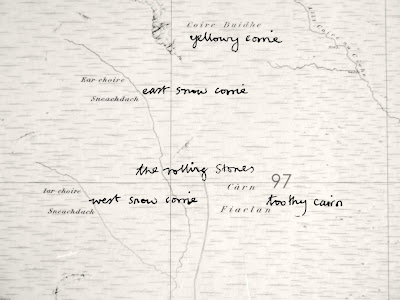 Coire Buidhe
yellowy corrie
Ear-choire
Sneachdach
east snow corrie
the rolling stones
Càrn
97
Iar-choire
Sneachdach
west snow corrie
Fiaclan
toothy cairn